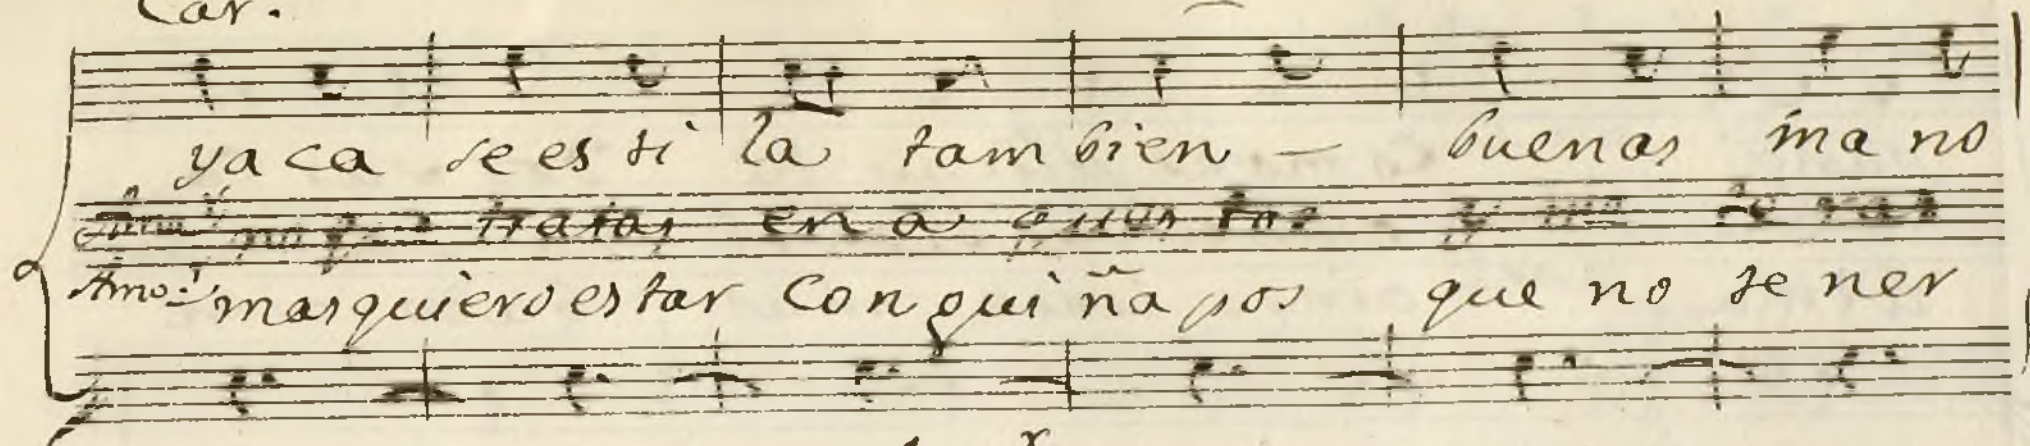 Car.
ya ca se es ti la tam bien – buenas ma no
tratar en a
Amo. mas quiero estar con gui ña pos que no te ner